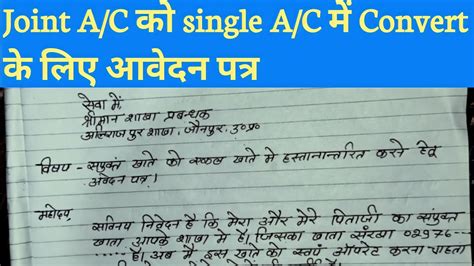 Joint A/C को single A/C में Convert
के लिए आवेदन पत्र
सेवा में
श्रीमान शाखा प्रबन्धक
अलिगंजपुर शाखा, जौनपुर, उ०प्र०
विषय - संयुक्त खाते को एकल खाते मे हस्तानान्तरित करने हेतू
आवेदन पत्र।
महोदय,
सविनय निवेदन है कि मेरा और मेरे पिताजी का संयुक्त
खाता आपके शाखा मे है। जिसका खाता संख्या 02976---
---- है। अब मैं इस खाते को स्वयं ऑपरेट करना चाहता